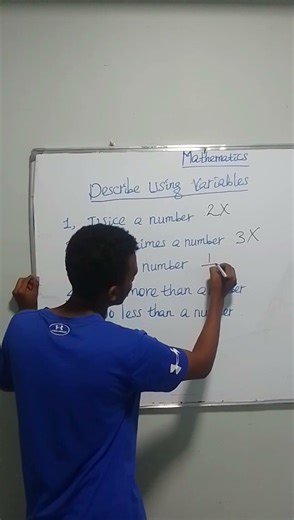 Mathematics
Describe Using Variables
1, Twice a number 2X
times a number 3X
number 1
more than a number
less than a number